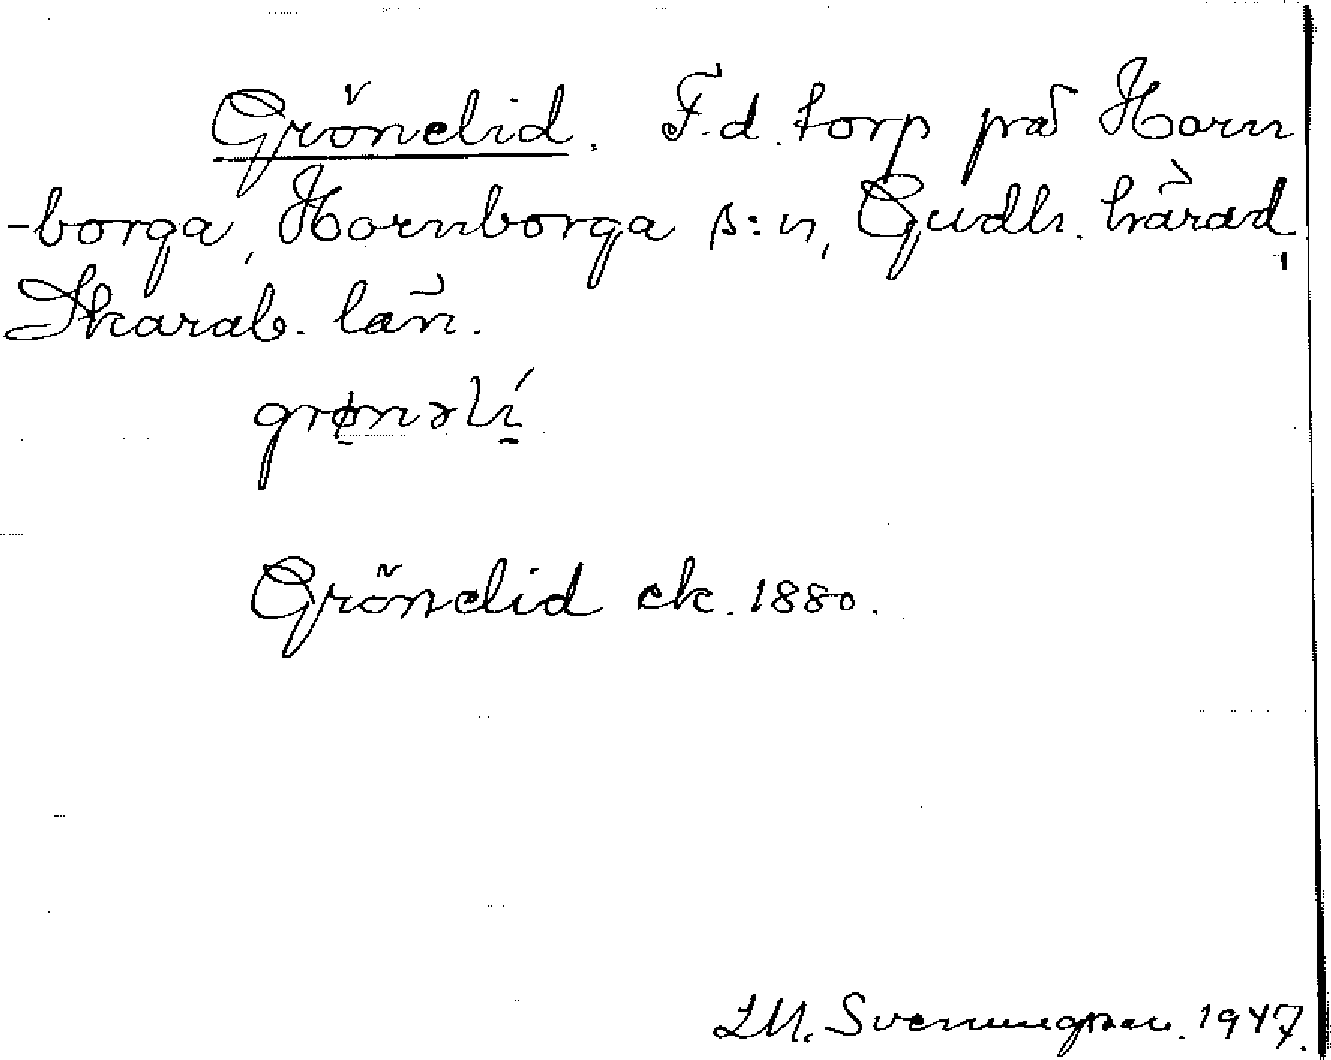 Grönelid. F.d. torp på Horn
-borga, Hornborga s:n, Gudh. härad,
Skarab. län.
grønəlí
Grönelid ek. 1880.
Svenungsson. 1947.